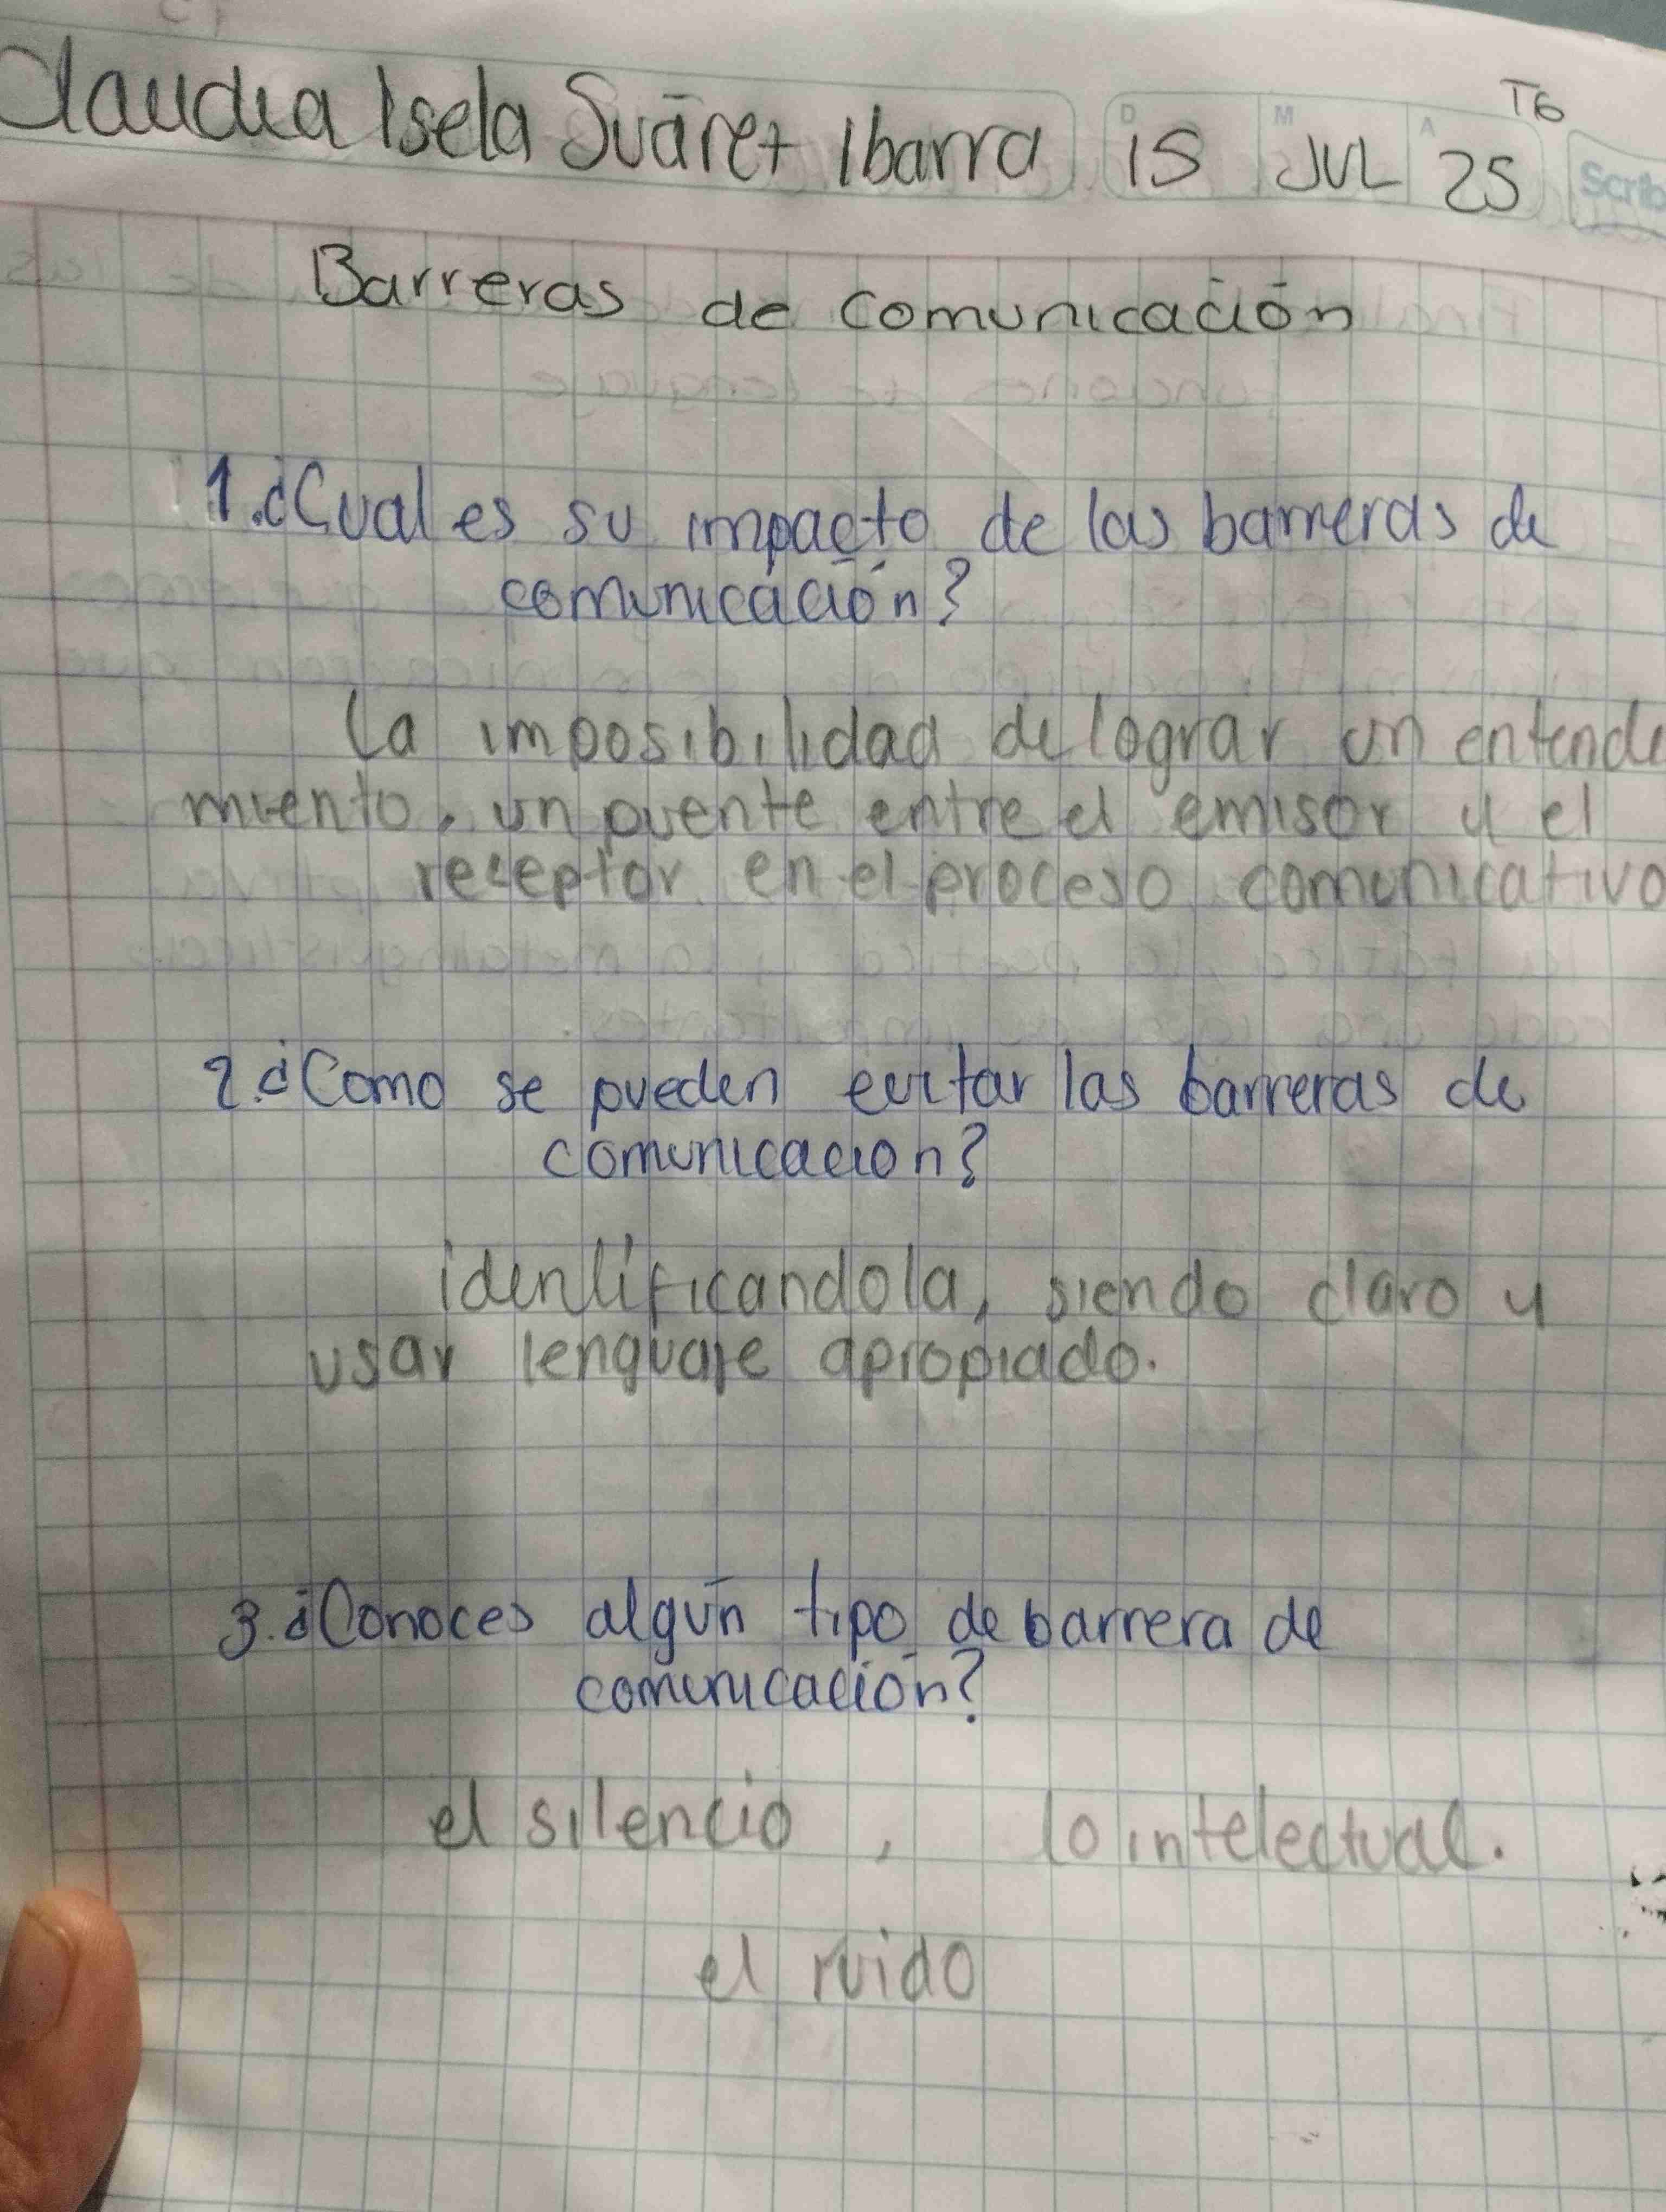 T6
Claudia Isela Suárez Ibarra D 15 M JUL A 25 Scrib
Barreras de comunicación
1. ¿Cual es su impacto de las barreras de
comunicación?
la imposibilidad de lograr un entende
miento, un puente entre el emisor y el
receptor en el proceso comunicativo
2. ¿Como se pueden evitar las barreras de
comunicacion?
identificandola, siendo claro y
usar lenguaje apropiado.
3. ¿Conoces algún tipo de barrera de
comunicación?
el silencio , lo intelectual.
el ruido